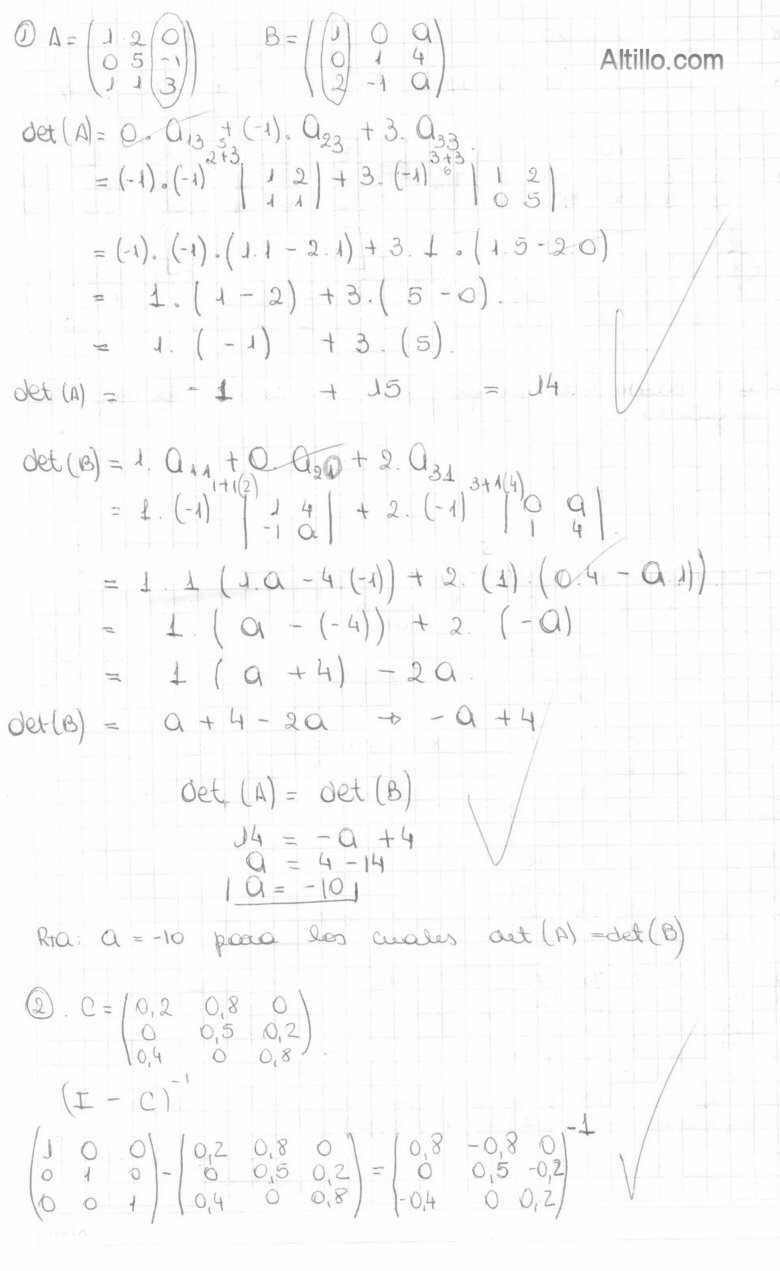 ① A = ( 1 2 0 B = ( 1 0 a
0 5 -1 0 1 4
1 1 3 ) 2 -1 a )
Altillo.com
det(A) = 0. a13 + (-1). a23 + 3. a33
= (-1).(-1)^2+3 | 1 2 | + 3. (-1)^3+3 | 1 2 |
1 1 0 5
= (-1). (-1). (1.1 - 2.1) + 3. 1 . (1.5 - 2.0)
= 1. ( 1 - 2) + 3. ( 5 - 0).
= 1. ( -1) + 3. (5).
det (A) = -1 + 15 = 14.
det(B) = 1. a11 + 0. a21 + 2. a31
= 1. (-1)^1+1(2) | 1 4 | + 2. (-1)^3+1(4) | 0 a |
-1 a 1 4
= 1 . 1 (1.a - 4.(-1)) + 2. (1) (0.4 - a.1))
= 1. ( a - (-4)) + 2. (-a)
= 1 ( a + 4) - 2a.
det(B) = a + 4 - 2a → -a + 4
det (A) = det (B)
14 = -a + 4
a = 4 - 14
a = -10
Rta: a = -10 para los cuales det (A) = det (B)
② . C = ( 0,2 0,8 0
0 0,5 0,2
0,4 0 0,8 )
(I - C)^-1
( 1 0 0 ) - ( 0,2 0,8 0 ) = ( 0,8 -0,8 0 )^-1
0 1 0 0 0,5 0,2 0 0,5 -0,2
0 0 1 0,4 0 0,8 -0,4 0 0,2